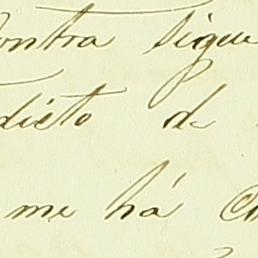 contra Sigue
dicto de
me há